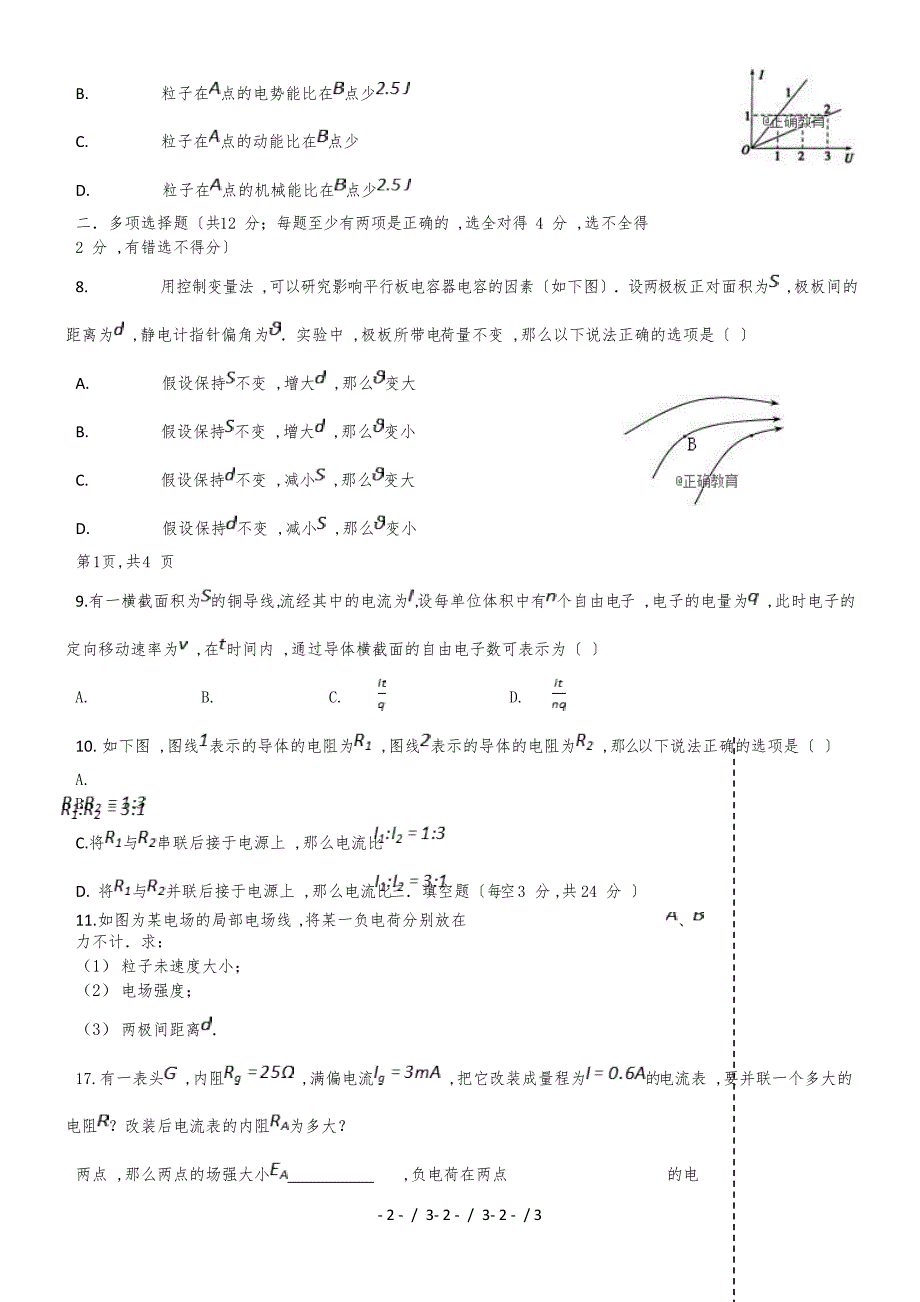 B. 粒子在A点的电势能比在B点少2.5J
C. 粒子在A点的动能比在B点少
D. 粒子在A点的机械能比在B点少2.5J
I
1
2
1
@正确教育
O
1
2
3
U
二．多项选择题〔共12 分；每题至少有两项是正确的 ,选全对得 4 分 ,选不全得
2 分 ,有错选不得分〕
8. 用控制变量法 ,可以研究影响平行板电容器电容的因素〔如下图〕．设两极板正对面积为S ,极板间的
距离为d ,静电计指针偏角为ϑ．实验中 ,极板所带电荷量不变 ,那么以下说法正确的选项是〔 〕
A. 假设保持S不变 ,增大d ,那么ϑ变大
B. 假设保持S不变 ,增大d ,那么ϑ变小
C. 假设保持d不变 ,减小S ,那么ϑ变大
D. 假设保持d不变 ,减小S ,那么ϑ变小
B
@正确教育
第1页,共4 页
9.有一横截面积为S的铜导线,流经其中的电流为I,设每单位体积中有n个自由电子 ,电子的电量为q ,此时电子的
定向移动速率为v ,在t时间内 ,通过导体横截面的自由电子数可表示为〔 〕
A. B. C. It/q D. It/nq
10. 如下图 ,图线1表示的导体的电阻为R1 ,图线2表示的导体的电阻为R2 ,那么以下说法正确的选项是〔 〕
A.
B.
R1:R2 = 1:3
R1:R2 = 3:1
C.将R1与R2串联后接于电源上 ,那么电流比I1:I2 = 1:3
D. 将R1与R2并联后接于电源上 ,那么电流比I1:I2 = 3:1三．填空题〔每空3 分 ,共 24 分 〕
11.如图为某电场的局部电场线 ,将某一负电荷分别放在 A、B
力不计．求：
（1） 粒子未速度大小；
（2） 电场强度；
（3） 两极间距离d．
17. 有一表头G ,内阻Rg = 25Ω ,满偏电流Ig = 3mA ,把它改装成量程为I = 0.6A的电流表 ,要并联一个多大的
电阻R? 改装后电流表的内阻RA为多大?
两点 ,那么两点的场强大小EA__________ ,负电荷在两点 的电
- 2 - / 3- 2 - / 3- 2 - / 3